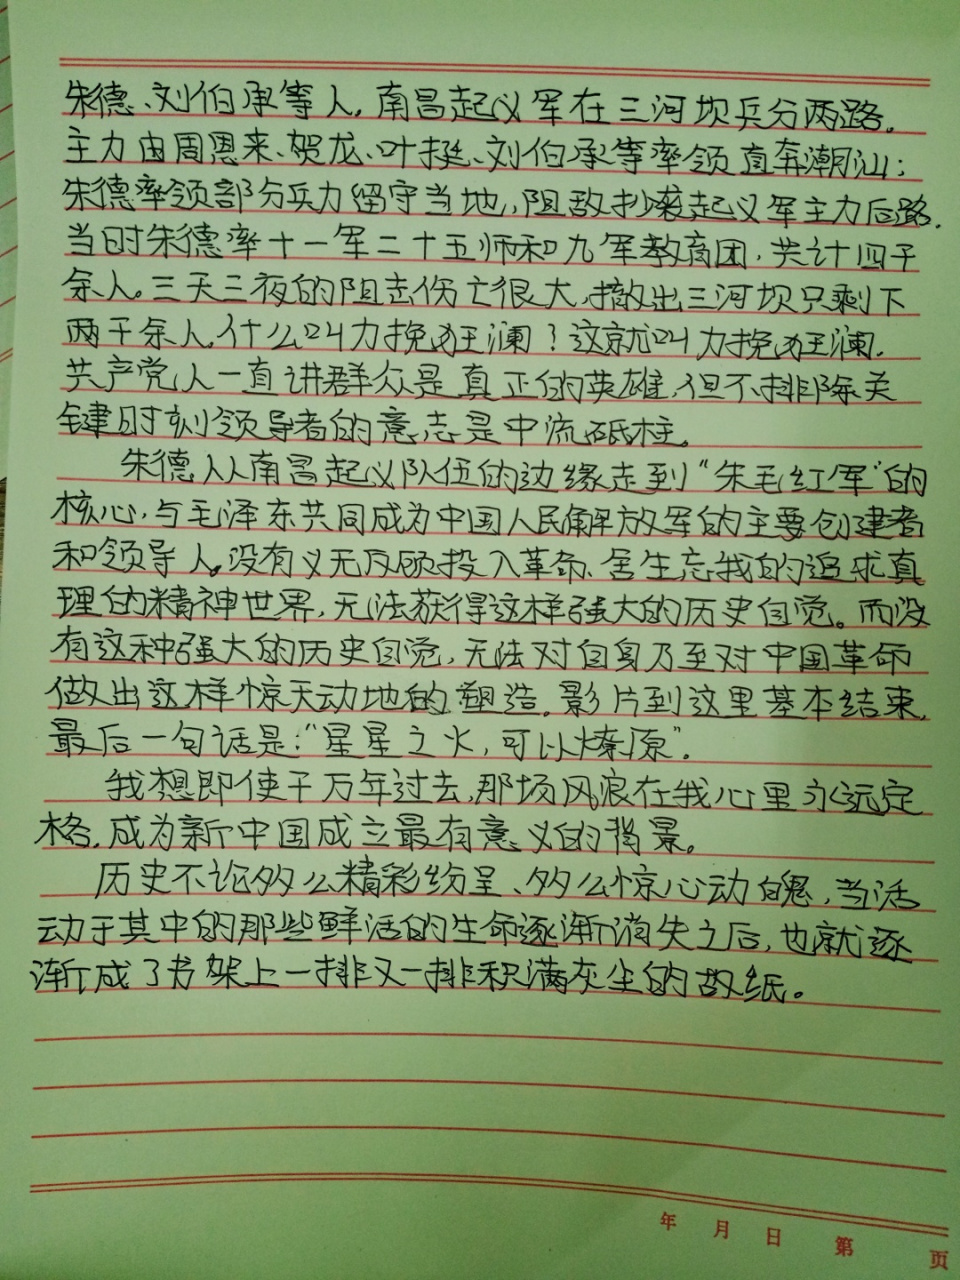 朱德、刘伯承等人。南昌起义军在三河坝兵分两路。
主力由周恩来、贺龙、叶挺、刘伯承等率领直奔潮汕；
朱德率领部分兵力留守当地，阻敌抄袭起义军主力后路。
当时朱德率十一军二十五师和九军教育团，共计四千
余人。三天三夜的阻击伤亡很大，撤出三河坝只剩下
两千余人。什么叫力挽狂澜？这就叫力挽狂澜。
共产党人一直讲群众是真正的英雄，但不排除关
键时刻领导者的意志是中流砥柱。
朱德从南昌起义队伍的边缘走到“朱毛红军”的
核心，与毛泽东共同成为中国人民解放军的主要创建者
和领导人。没有义无反顾投入革命、舍生忘我的追求真
理的精神世界，无法获得这样强大的历史自觉。而没
有这种强大的历史自觉，无法对自身乃至对中国革命
做出这样惊天动地的塑造。影片到这里基本结束，
最后一句话是：“星星之火，可以燎原”。
我想即使千万年过去，那场风浪在我心里永远定
格，成为新中国成立最有意义的背景。
历史不论多么精彩纷呈、多么惊心动魄，当活
动于其中的那些鲜活的生命逐渐消失之后，也就逐
渐成了书架上一排又一排积满灰尘的故纸。
年 月 日 第 页